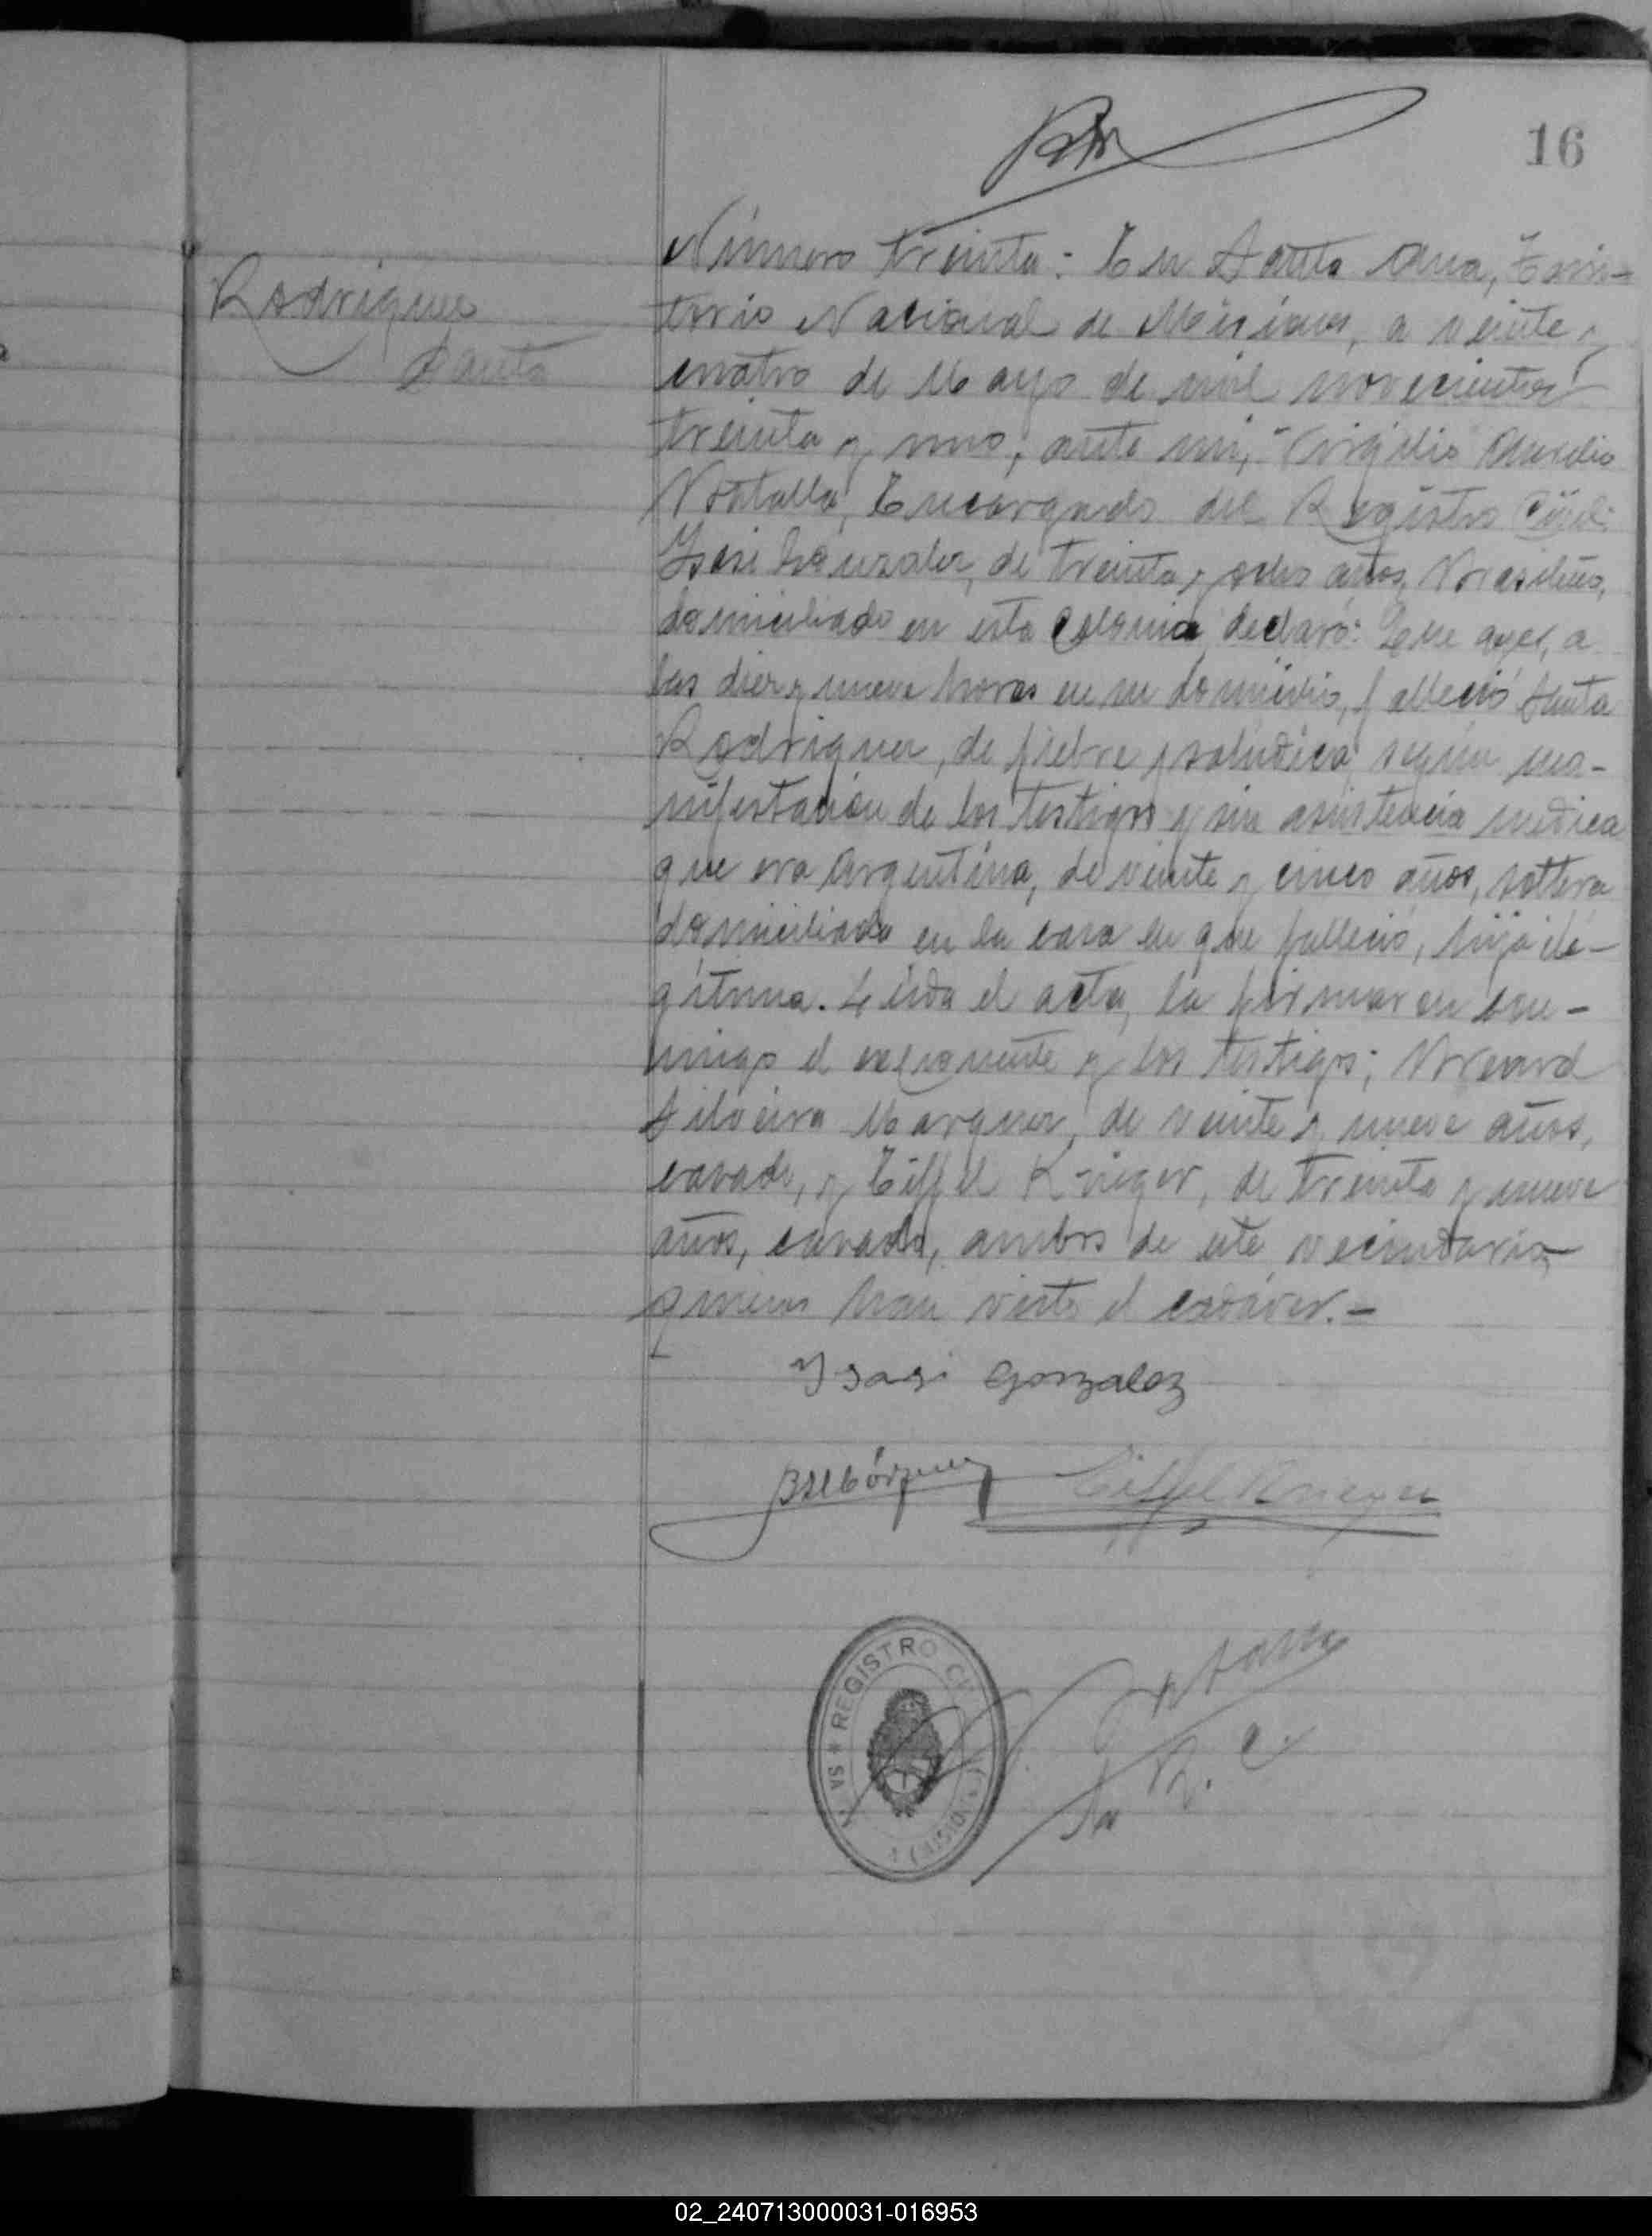 16
Rodriguez
Santa
Número treinta: En Santa Ana, Terri-
torio Nacional de Misiones, a veinte y
cuatro de Mayo de mil novecientos
treinta y uno, ante mi, Virgilio Aurelio
Encargado del Registro Civil:
Ysasi González, de treinta y ocho años, Brasileño,
domiciliado en esta Colonia declaró: Que ayer, a
las diez y nueve horas en su domicilio, falleció Santa
Rodriguez, de fiebre palúdica, según ma-
nifestación de los testigos y sin asistencia médica
que era Argentina, de veinte y cinco años, soltera
domiciliada en la casa en que falleció, hija ile-
gítima. Leída el acta, la firmaron con-
migo el exponente y los testigos;
Silveira Marquez, de veinte y nueve años,
casado, y Eiffel Krieger, de treinta y nueve
años, casado, ambos de este vecindario,
quienes han visto el cadáver.-
Ysasi Gonzalez
BSMárquez Eiffel Krieger
REGISTRO CIVIL
R. C.
02_240713000031-016953